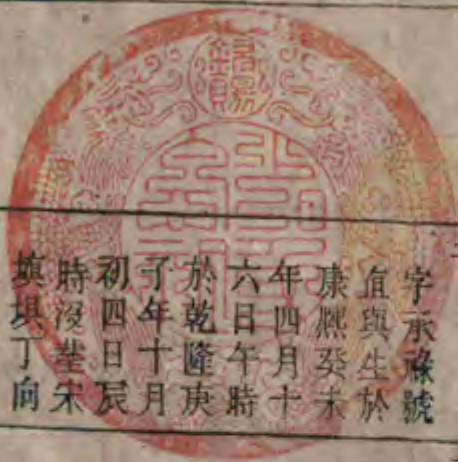 字承祿號
值與生於
康熈癸未
年四月十
六日午時
於乾隆庚
子年十月
初四日辰
時沒塟宋
塡垻丁向